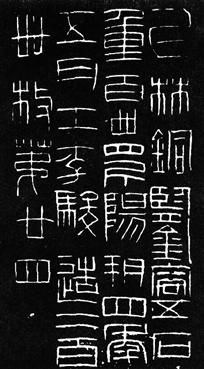 上林銅鑒容五石
重百卌斤陽朔四年
五月工李駿造二百
卌枚第廿四